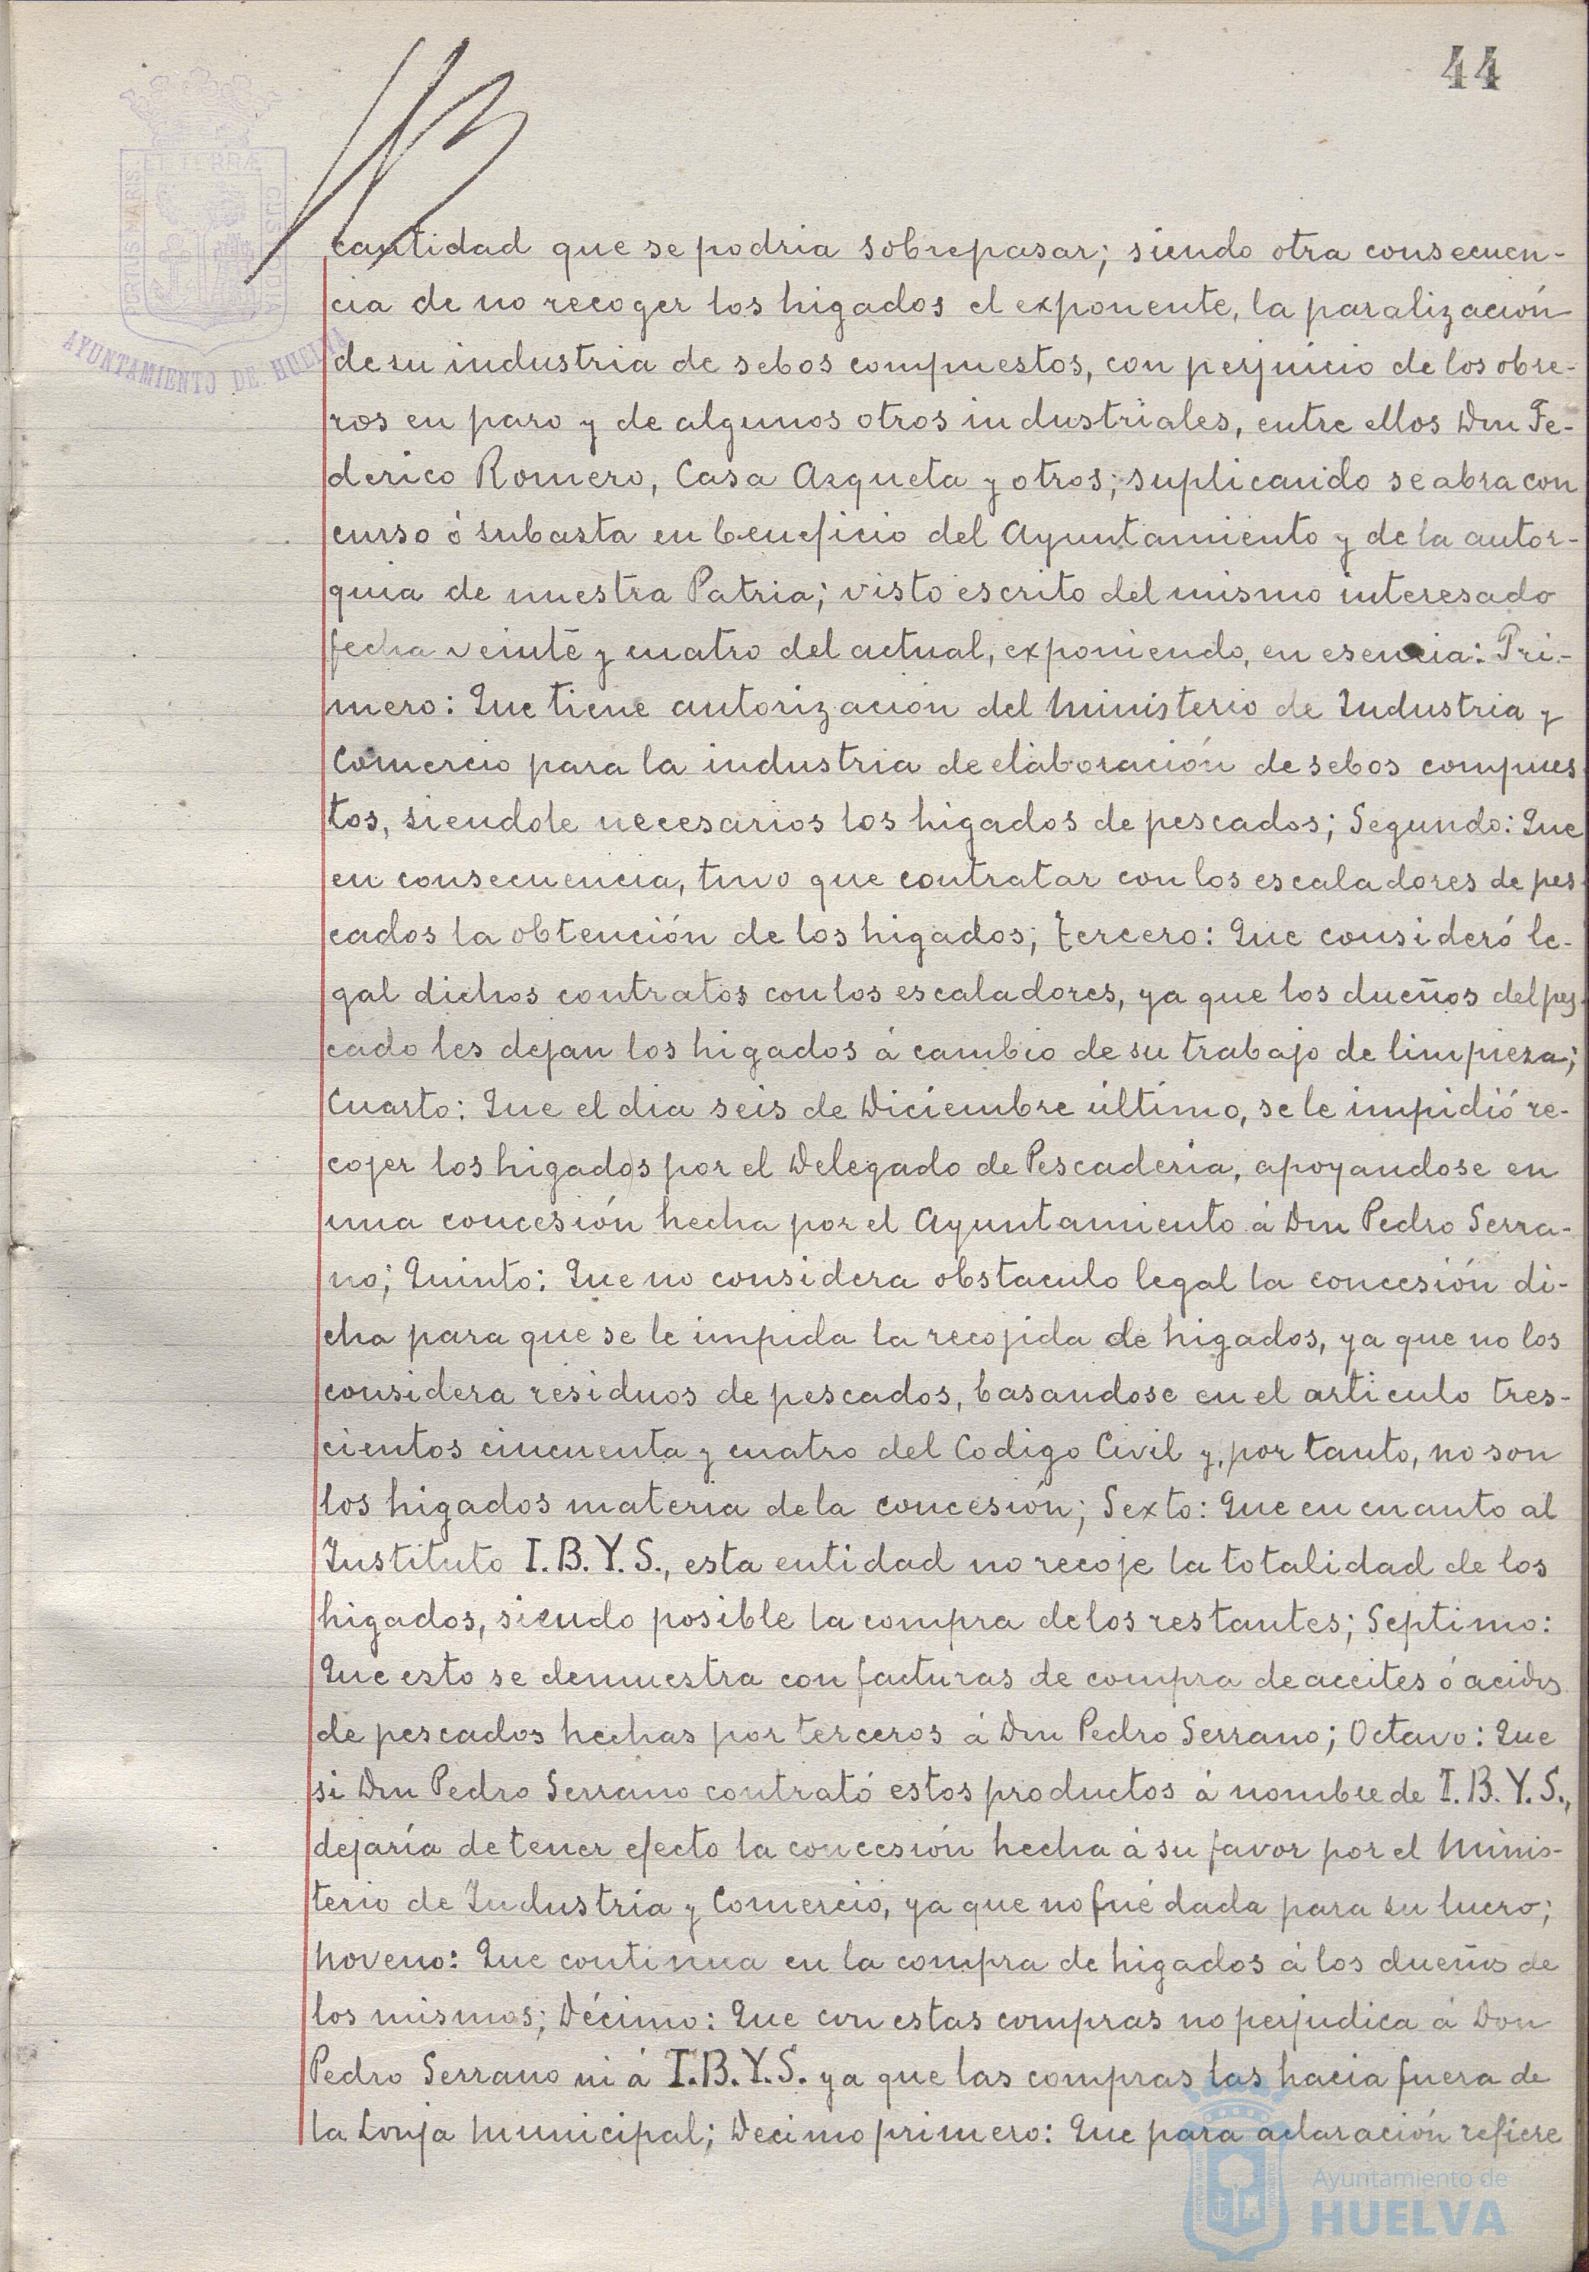 44
PORTUS MARIS ET TERRÆ CUSTODIA
AYUNTAMIENTO DE HUELVA
cantidad que se podria sobrepasar; siendo otra consecuen-
cia de no recoger los higados el exponente, la paralización
de su industria de sebos compuestos, con perjuicio de los obre-
ros en paro y de algunos otros industriales, entre ellos Don Fe-
derico Romero, Casa Azqueta y otros; suplicando se abra con
curso ó subasta en beneficio del Ayuntamiento y de la autor-
quia de nuestra Patria; visto escrito del mismo interesado
fecha veinte y cuatro del actual, exponiendo, en esencia: Pri-
mero: Que tiene autorización del Ministerio de Industria y
Comercio para la industria de elaboración de sebos compues
tos, siendole necesarios los higados de pescados; Segundo: Que
en consecuencia, tuvo que contratar con los escaladores de pes
cados la obtención de los higados; tercero: Que consideró le-
gal dichos contratos con los escaladores, ya que los dueños del pes-
cado les dejan los higados á cambio de su trabajo de limpieza;
Cuarto: Que el dia seis de Diciembre último, se le impidió re-
cojer los higados por el Delegado de Pescaderia, apoyandose en
una concesión hecha por el Ayuntamiento á Don Pedro Serra-
no; Quinto: Que no considera obstaculo legal la concesión di-
cha para que se le impida la recojida de higados, ya que no los
considera residuos de pescados, basandose en el articulo tres-
cientos cincuenta y cuatro del Codigo Civil y, por tanto, no son
los higados materia de la concesión; Sexto: Que en cuanto al
Instituto I.B.Y.S., esta entidad no recoje la totalidad de los
higados, siendo posible la compra de los restantes; Septimo:
Que esto se demuestra con facturas de compra de aceites ó acidos
de pescados hechas por terceros á Don Pedro Serrano; Octavo: Que
si Don Pedro Serrano contrató estos productos á nombre de I.B.Y.S.,
dejaría de tener efecto la concesión hecha á su favor por el Minis-
terio de Industria y Comercio, ya que no fué dada para su lucro;
Noveno: Que continua en la compra de higados á los dueños de
los mismos; Décimo: Que con estas compras no perjudica á Don
Pedro Serrano ni á I.B.Y.S. ya que las compras las hacia fuera de
la Lonja Municipal; Decimo primero: Que para aclaración refiere
Ayuntamiento de
HUELVA